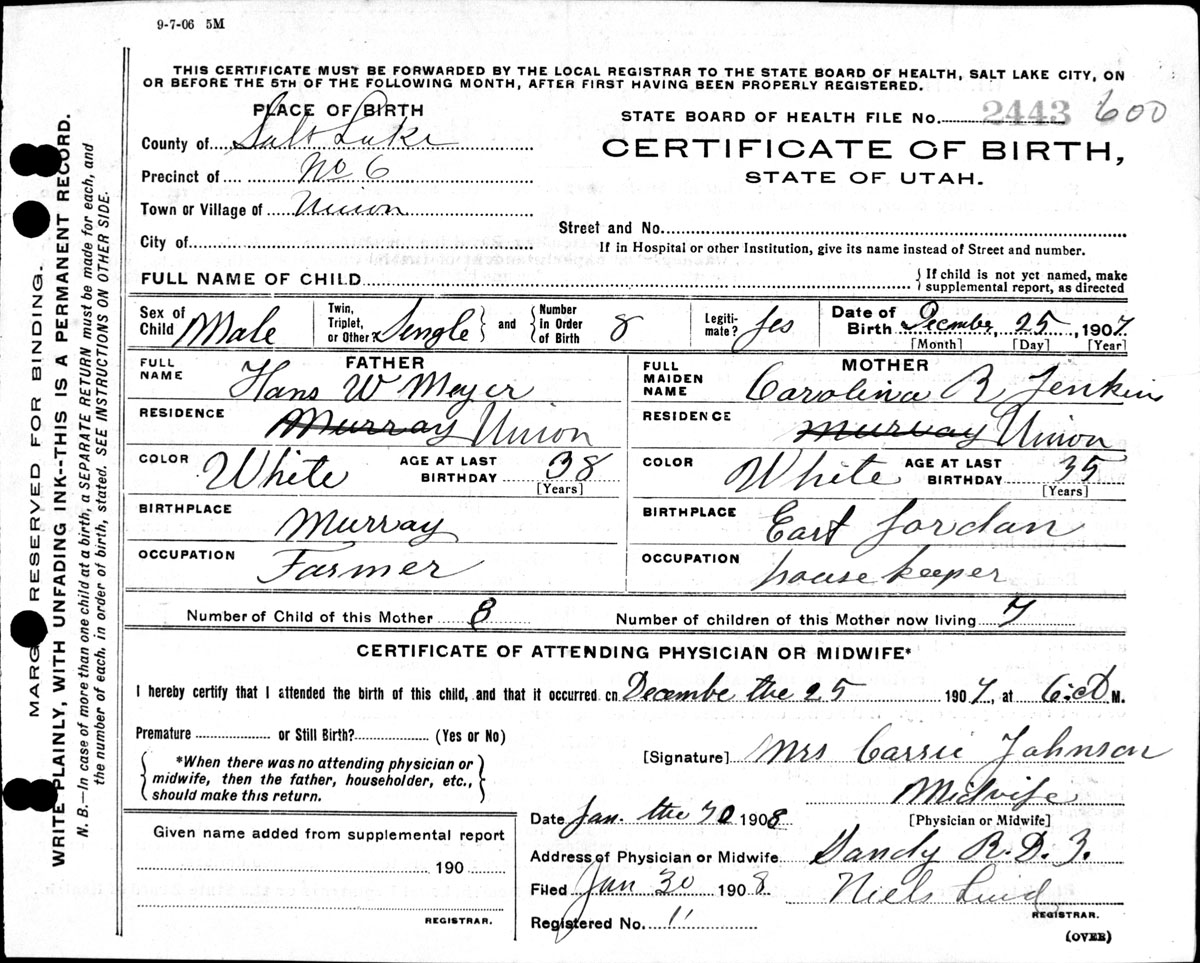 9-7-06 5M
THIS CERTIFICATE MUST BE FORWARDED BY THE LOCAL REGISTRAR TO THE STATE BOARD OF HEALTH, SALT LAKE CITY, ON
OR BEFORE THE 5TH OF THE FOLLOWING MONTH, AFTER FIRST HAVING BEEN PROPERLY REGISTERED.
PLACE OF BIRTH
County of Salt Lake
Precinct of No 6
Town or Village of Union
City of
STATE BOARD OF HEALTH FILE No. 2443 600
CERTIFICATE OF BIRTH,
STATE OF UTAH.
Street and No.
If in Hospital or other Institution, give its name instead of Street and number.
FULL NAME OF CHILD
{If child is not yet named, make
supplemental report, as directed
Sex of Child Male
Twin, Triplet, or Other? Sengle } and { Number in Order of Birth 8
Legiti-mate? yes
Date of Birth December, 25, 1907
[Month] [Day] [Year]
FATHER
FULL NAME Hans W Meyer
RESIDENCE Murray Union
COLOR White AGE AT LAST BIRTHDAY 38
[Years]
BIRTHPLACE Murray
OCCUPATION Farmer
MOTHER
FULL MAIDEN NAME Carolina R Jenkins
RESIDENCE Murray Union
COLOR White AGE AT LAST BIRTHDAY 35
[Years]
BIRTHPLACE East Jordan
OCCUPATION house keeper
Number of Child of this Mother 8 Number of children of this Mother now living 7
CERTIFICATE OF ATTENDING PHYSICIAN OR MIDWIFE*
I hereby certify that I attended the birth of this child, and that it occurred on Decembe the 25 1907, at M.
Premature or Still Birth? (Yes or No)
{*When there was no attending physician or
midwife, then the father, householder, etc.,
should make this return.}
[Signature] Mrs Carrie Johnson
Midwife
[Physician or Midwife]
Date Jan. the 30 1908
Address of Physician or Midwife Sandy R.D. 3.
Filed Jan 30 1908 Niels Lind
REGISTRAR.
Registered No. 11
(OVER)
Given name added from supplemental report
190
REGISTRAR.
MARGIN RESERVED FOR BINDING.
WRITE PLAINLY, WITH UNFADING INK--THIS IS A PERMANENT RECORD.
N. B.—In case of more than one child at a birth, a SEPARATE RETURN must be made for each, and
the number of each, in order of birth, stated. SEE INSTRUCTIONS ON OTHER SIDE.